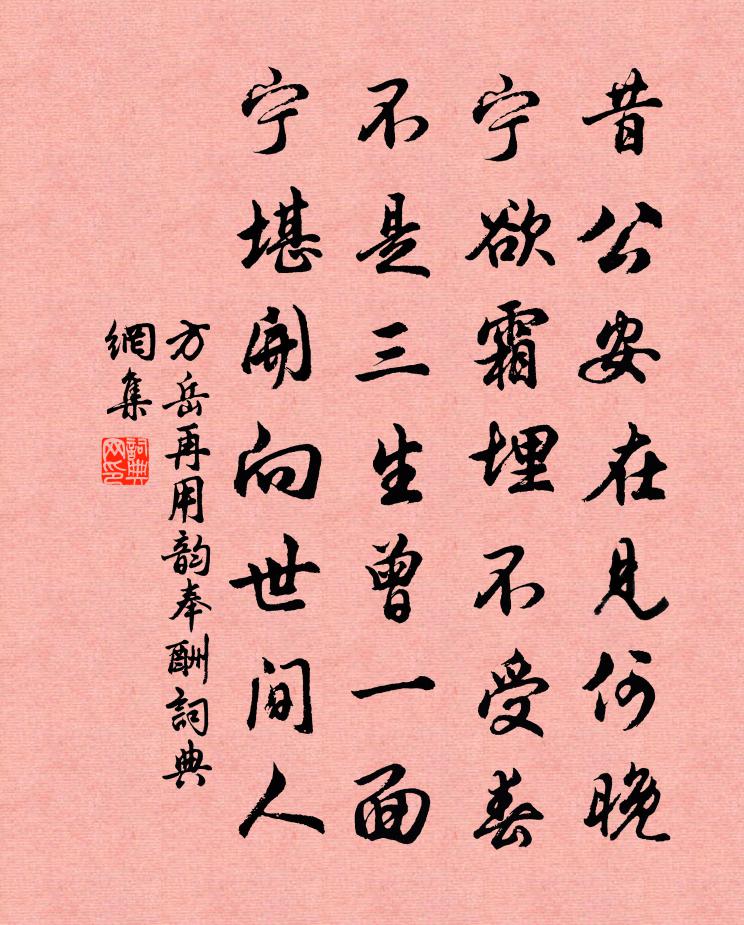 昔公安在見何晚
宁欲霜埋不受春
不是三生曾一面
宁堪開向世間人
方岳再用韵奉酬詞典
網集
詞典
网印